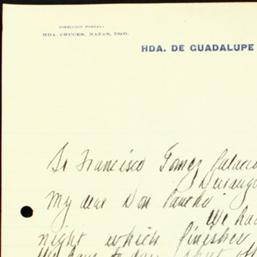 DIRECCION POSTAL:
HDA. CRUCES, NAZAS, DGO.
HDA. DE GUADALUPE
Sr Francisco Gomez Palacio
Durango
My dear Don Pancho:
We had
night which finished
We have to day